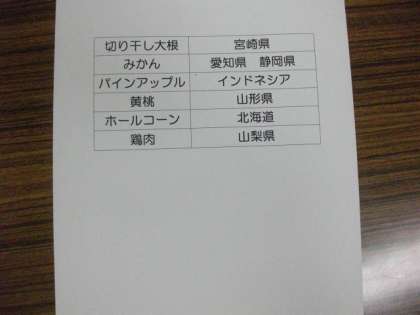 切り干し大根 宮崎県
みかん 愛知県 静岡県
パインアップル インドネシア
黄桃 山形県
ホールコーン 北海道
鶏肉 山梨県